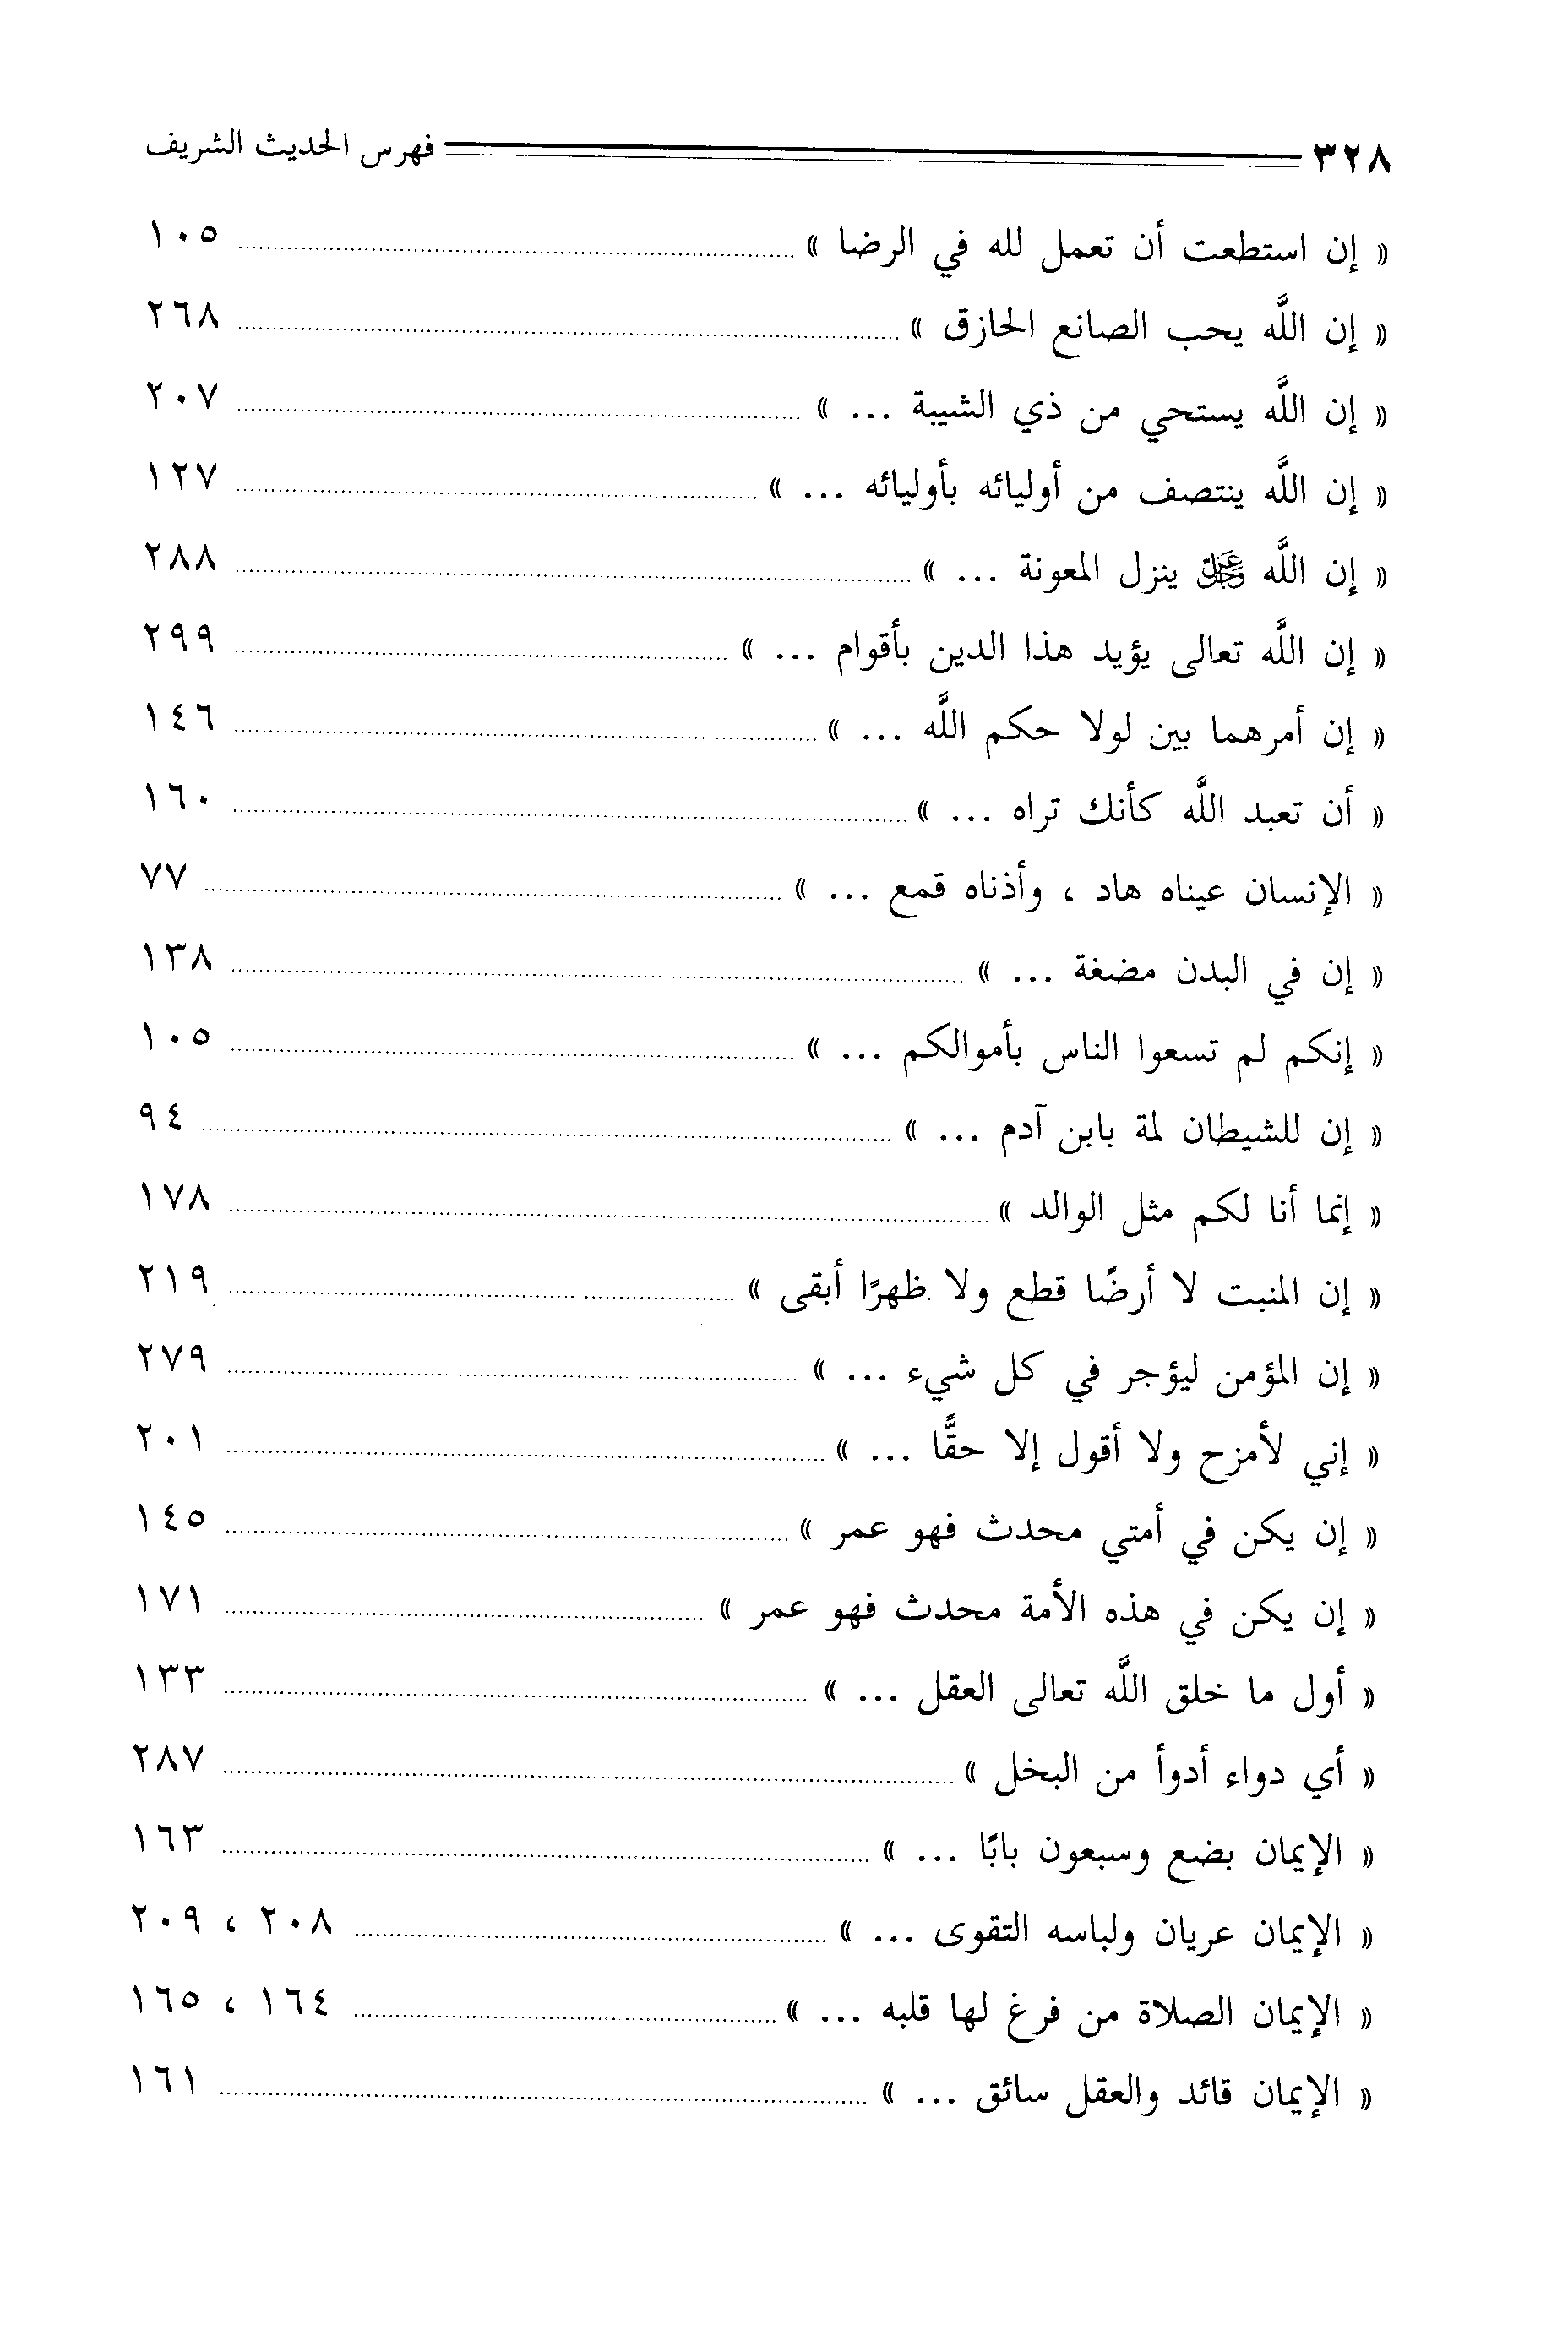 ٣٢٨ فهرس الحديث الشريف
« إن استطعت أن تعمل لله في الرضا » ١٠٥
« إن اللَّه يحب الصانع الحازق » ٢٦٨
« إن اللَّه يستحي من ذي الشيبة ... » ٢٠٧
« إن اللَّه ينتصف من أوليائه بأوليائه ... » ١٢٧
« إن اللَّه عز وجل ينزل المعونة ... » ٢٨٨
« إن اللَّه تعالى يؤيد هذا الدين بأقوام ... » ٢٩٩
« إن أمرهما بين لولا حكم اللَّه ... » ١٤٦
« أن تعبد اللَّه كأنك تراه ... » ١٦٠
« الإنسان عيناه هاد ، وأذناه قمع ... » ٧٧
« إن في البدن مضغة ... » ١٣٨
« إنكم لم تسعوا الناس بأموالكم ... » ١٠٥
« إن للشيطان لمة بابن آدم ... » ٩٤
« إنما أنا لكم مثل الوالد » ١٧٨
« إن المنبت لا أرضًا قطع ولا ظهرًا أبقى » ٢١٩
« إن المؤمن ليؤجر في كل شيء ... » ٢٧٩
« إني لأمزح ولا أقول إلا حقًّا ... » ٢٠١
« إن يكن في أمتي محدث فهو عمر » ١٤٥
« إن يكن في هذه الأمة محدث فهو عمر » ١٧١
« أول ما خلق اللَّه تعالى العقل ... » ١٣٣
« أي دواء أدوأ من البخل » ٢٨٧
« الإيمان بضع وسبعون بابًا ... » ١٦٣
« الإيمان عريان ولباسه التقوى ... » ٢٠٨ ، ٢٠٩
« الإيمان الصلاة من فرغ لها قلبه ... » ١٦٤ ، ١٦٥
« الإيمان قائد والعقل سائق ... » ١٦١